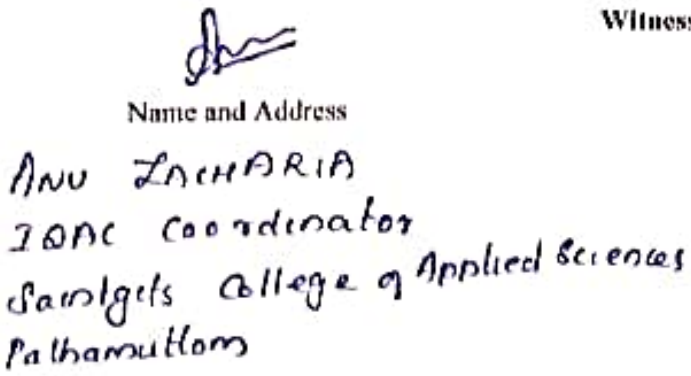 Witness
Name and Address
ANU ZACHARIA
IQAC Coordinator
Saintgits College of Applied Sciences
Pathamuttom